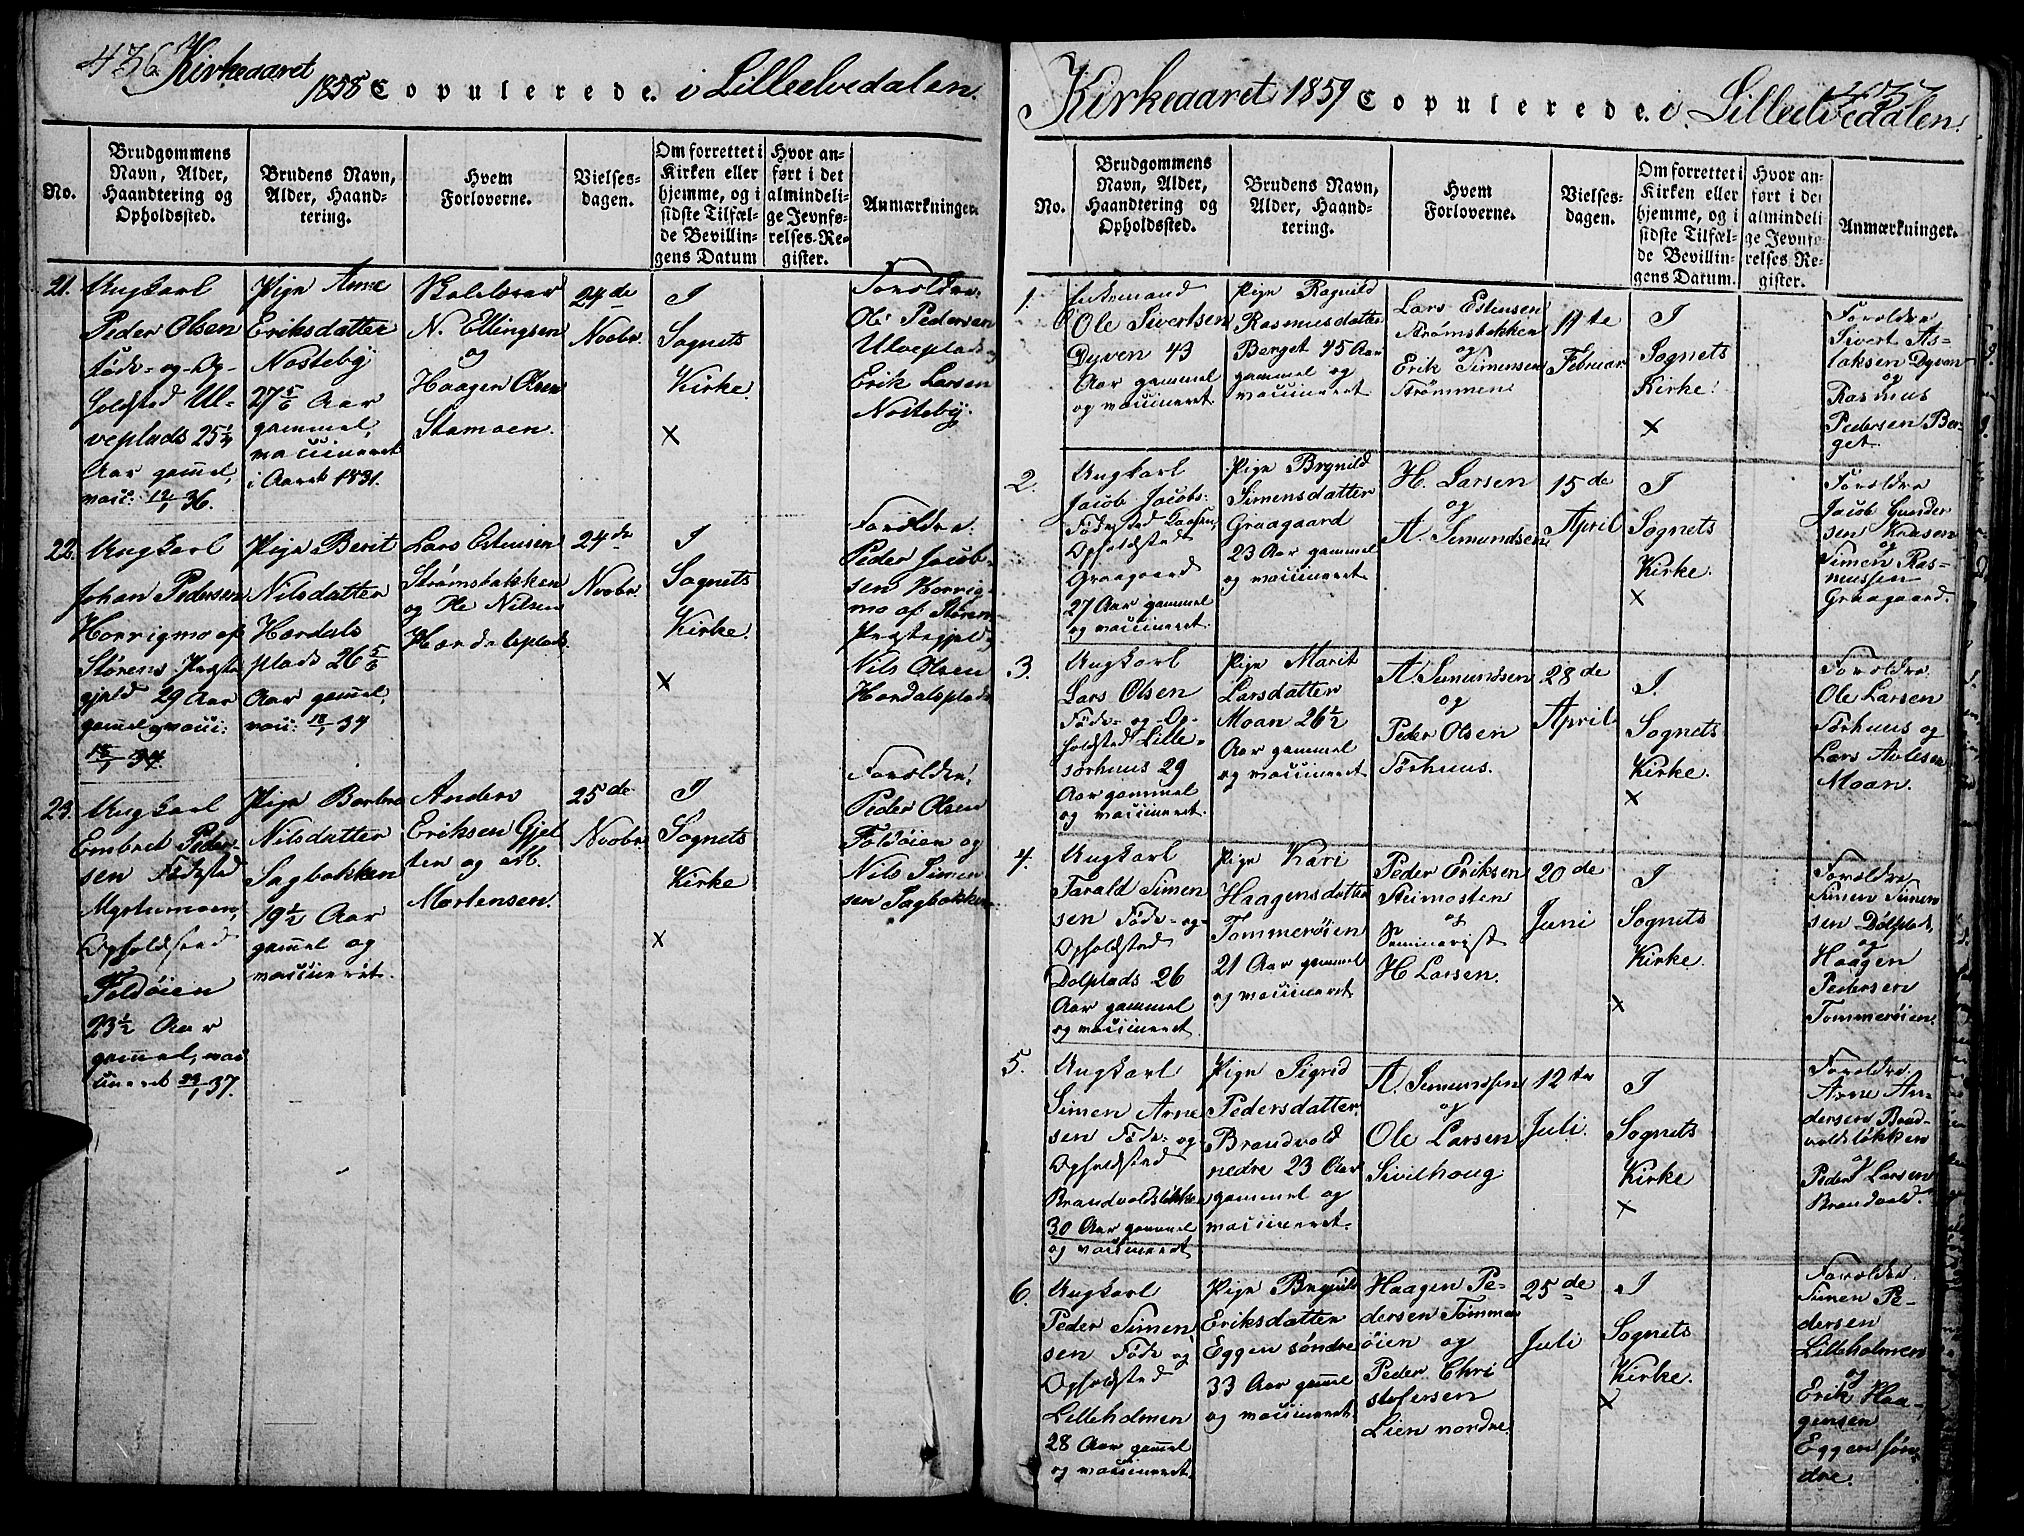 436 Kirkeaaret 1858 Copulerede. i Lilleelvedalen.
No.
Brudgommens
Navn, Alder,
Haandtering og
Opholdssted.
Brudens Navn,
Alder, Haand-
tering.
Hvem
Forloverne.
Vielses-
dagen.
Om forrettet i
Kirken eller
hjemme, og i
sidste Tilfæl-
de Bevillin-
gens Datum
Hvor an-
ført i det
almindeli-
ge Jevnfø-
relses-Re-
gister.
Anmærkninger.
21.
Ungkarl
Peder Olsen
Føde- og Op-
holdsted Ul-
veplads 25 1/4
Aar gamel,
vacc: 12/1 36.
Pige Anne
Eriksdatter
Nosteby
27 5/6 Aar
gammel,
vaccineret
i Aaret 1831.
Skolelærer
N. Ellingsen
og
Haagen Olsen
Stamoen.
24de
Novbr.
I
Sognets
Kirke.
X
Forældre:
Ole Pedersen
Ulveplads og
Erik Larsen
Nosteby.
22.
Ungkarl
Johan Pedersen
Horrigmo af
Størens Præste
gjeld 29 Aar
gamel og vacci:
18/1 34.
Pige Berit
Nilsdatter
Hordals
plads 26 5/6
Aar gamel,
vacc: 18/1 34
Lars Estensen
Strømsbakken
og Ole Nilsen
Hordalsplads.
24de
Novbr
I
Sognets
Kirke.
X
Forældre:
Peder Jacob-
sen Horrig-
mo af Størens
Præstegjeld og
Nils Olsen
Hordalsplads
23.
Ungkarl
Embret Peder-
sen Fødested
Myrtumoen,
Opholdsted
Foldøien
23 1/2 Aar
gamel, vac
cineret 29/1 37.
Pige Barbro
Nilsdatter
Sagbakken
19 1/2 Aar
gamel og
vaccineret.
Anders
Eriksen Gjel
ten og
Mortensen.
25de
Novbr.
I
Sognets
Kirke
X
Forældre:
Peder Olsen
Foldøien og
Nils Simen
sen Sagbakken
Kirkeaaret 1859 Copulerede. i Lilleelvedalen.
No.
Brudgommens
Navn, Alder,
Haandtering og
Opholdssted.
Brudens Navn,
Alder, Haand-
tering.
Hvem
Forloverne.
Vielses-
dagen.
Om forrettet i
Kirken eller
hjemme, og i
sidste Tilfæl-
de Bevillin-
gens Datum.
Hvor an-
ført i det
almindeli
ge Jevnfø-
relses Re-
gister.
Anmærkninger.
1.
Enkemand
Ole Sivertsen
Dyven 43
Aar gammel
og vaccineret.
Pige Ragnild
Rasmusdatter
Berget 45 Aar
gammel og
vaccineret.
Lars Estensen
Strømsbakken
og
Erik Simensen
Strømmen.
17te
Februar
I
Sognets
Kirke.
X
Forældre
Sivert As-
laksen Dyven
og
Rasmus
Pedersen Ber-
get.
2.
Ungkarl
Jacob Jacobs:
Fødested Kaasen,
Opholdstedt
Graagaard
27 Aar gammel
og vaccineret.
Pige Brynild
Simensdatter
Graagaard
23 Aar gammel
og vaccineret.
H. Larsen
og
A. Simundsen
15de
April
I
Sognets
Kirke.
X
Forældre
Jacob Gunder
sen Kaasen
og
Simen Ras-
mussen
Graagaard.
3.
Ungkarl
Lars Olsen
Føde- og Op-
holdsted Lille-
sørhuus 29
Aar gammel
og vaccineret.
Pige Marit
Larsdatter
Moan 26 1/2
Aar gammel
og vaccineret
A. Simundsen
og
Peder Olsen
Sørhuus.
28de
April
I
Sognets
Kirke.
X
Forældre.
Ole Larsen
Sørhuus og
Lars
Moan.
4.
Ungkarl
Tarald Simen
sen Føde- og
Opholdsted
Dølplads 26
Aar gammel
og vaccineret.
Pige Kari
Haagensdatter
Tommerøien
21 Aar gammel
og vaccineret.
Peder Eriksen
Steimosten
og
Seminarist
H Larsen.
20de
Juni
I
Sognets
Kirke.
X
Forældre
Simen Simen
sen Dølplads
og
Haagen
Pedersen
Tommerøien.
5.
Ungkarl
Simen Arne
sen Føde- og
Opholdsted
Brandvoldsløkken
30 Aar gammel
og vaccineret
Pige Sigrid
Pedersdatter
Brandvold
nedre 23 Aar
gammel og
vaccineret.
A. Simundsen
og
Ole Larsen
Sivilhoug
12te
Juli.
I
Sognets
Kirke
X
Forældre.
Arne An-
dersen Brand-
voldsløkken
og
Peder Larsen
Brandvold.
6.
Ungkarl
Peder Simen
sen Føde og
Opholdsted
Lilleholmen
28 Aar gamel
og vaccineret.
Pige Brynild
Eriksdatter
Eggen søndre
33 Aar gamel
og vaccineret.
Haagen Pe-
dersen Tømmer
øien og
Peder Chri
stofersen
Lien nordre.
25de
Juli
I
Sognets
Kirke.
X
Forældre.
Simen Pe-
dersen
Lilleholmen
og
Erik Haa-
gensen
Eggen søn-
dre.